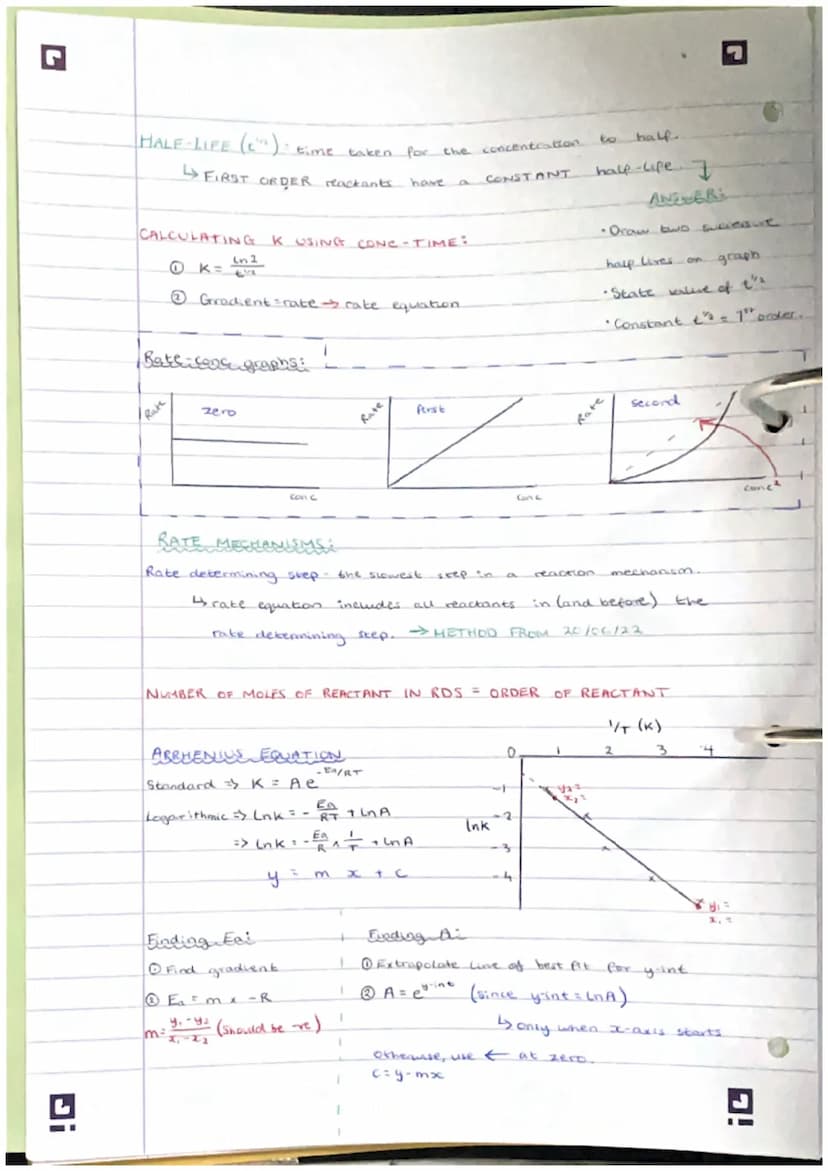 HALF-LIFE (t½): time taken for the concentration to half.
↳ FIRST ORDER reactants have a CONSTANT half-life.
ANSWER:
• Draw two successive
half lives on graph
• State value of t½
• Constant t½ = 1st order.
CALCULATING K USING CONC-TIME:
① K = ln2/t½
② Gradient = rate → rate equation
Rate-conc graphs:
Rate zero conc
Rate first conc
Rate second conc²
RATE MECHANISMS:
Rate determining step - the slowest step in a reaction mechanism.
↳ rate equation includes all reactants in (and before) the
rate determining step. → METHOD FROM 20/06/22
NUMBER OF MOLES OF REACTANT IN RDS = ORDER OF REACTANT
ARRHENIUS EQUATION
Standard => K = Ae^-Ea/RT
Logarithmic => lnk = - Ea/RT + lnA
=> lnk = - Ea/R × 1/T + lnA
y = m x + c
1/T (K)
0 1 2 3 4
-1
-2
-3
-4
lnk
y₂ =
x₂ =
y₁ =
x₁ =
Finding Ea:
① Find gradient
② Ea = m × -R
m = y₁ - y₂/x₁ - x₂ (should be -ve)
Finding A:
① Extrapolate line of best fit for y-int
② A = e^y-int (since y-int = lnA)
↳ only when x-axis starts
at zero.
otherwise, use ←
c = y - mx